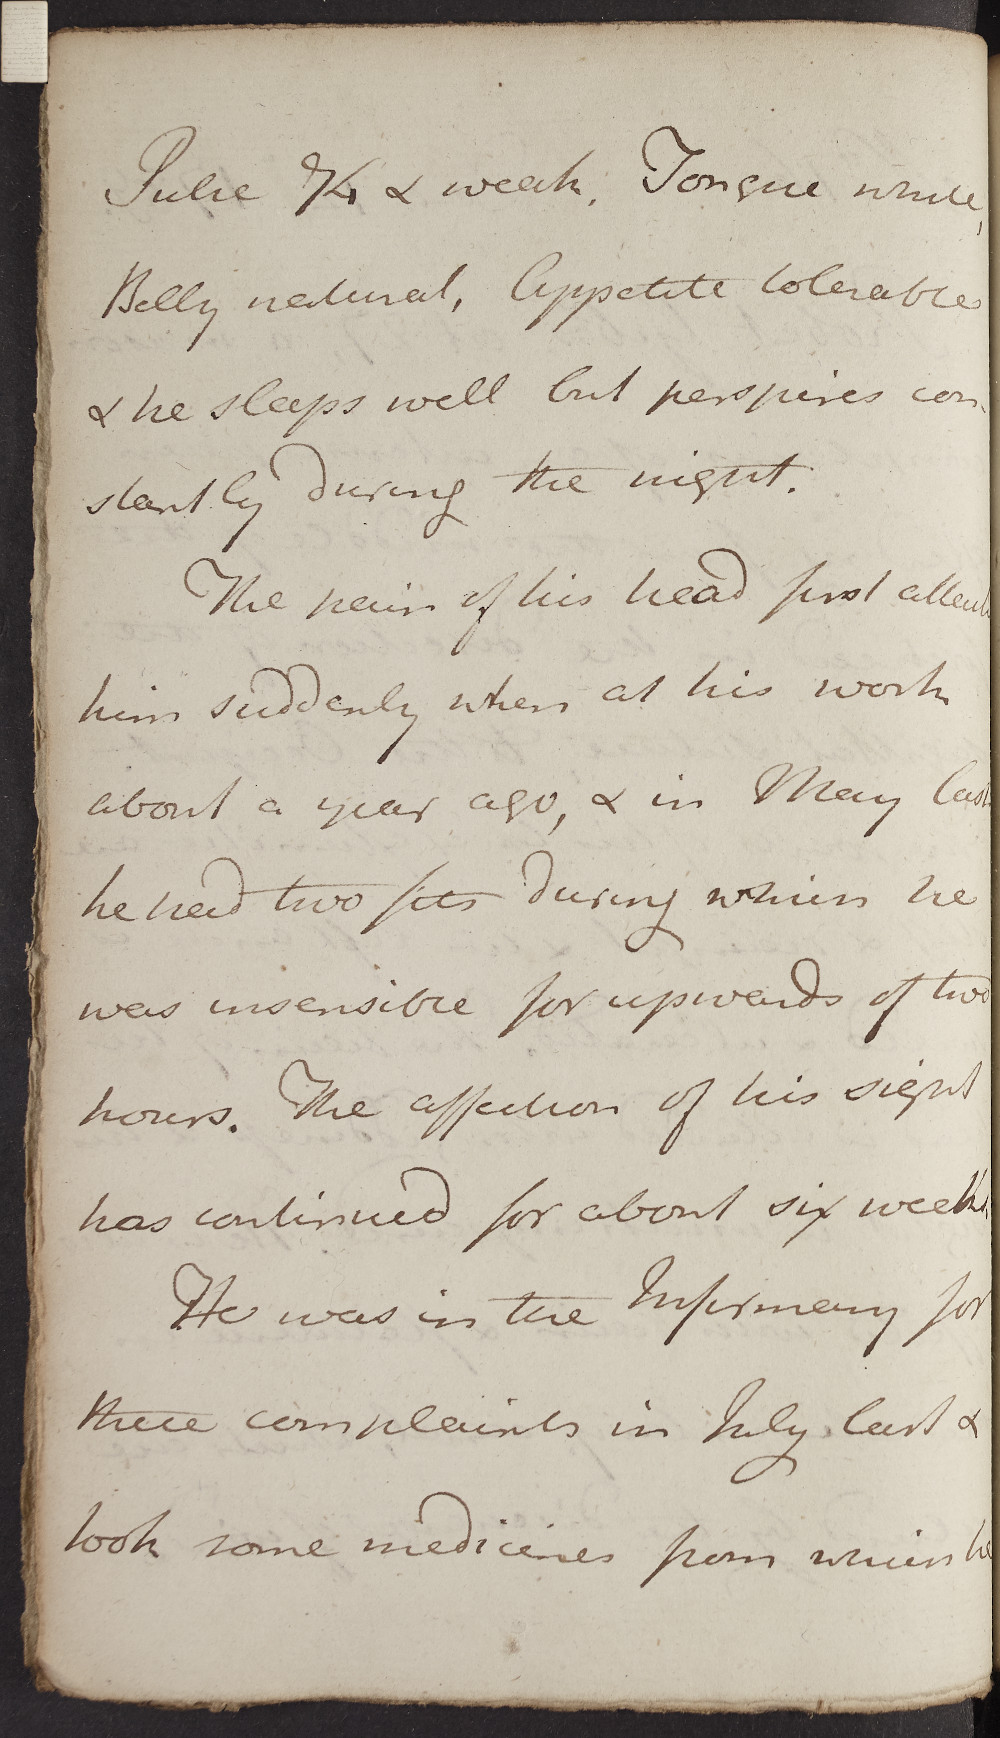 Pulse 74 & weak, Tongue white,
Belly natural, Appetite tolerable
& he sleeps well but perspires con-
stantly during the night.
The pain of his head first attack
him suddenly when at his work
about a year ago, & in May last
he had two fits during which he
was insensible for upwards of two
hours. The affection of his sight
has continued for about six weeks.
He was in the Infirmary for
these complaints in July last &
took some medicines from which he